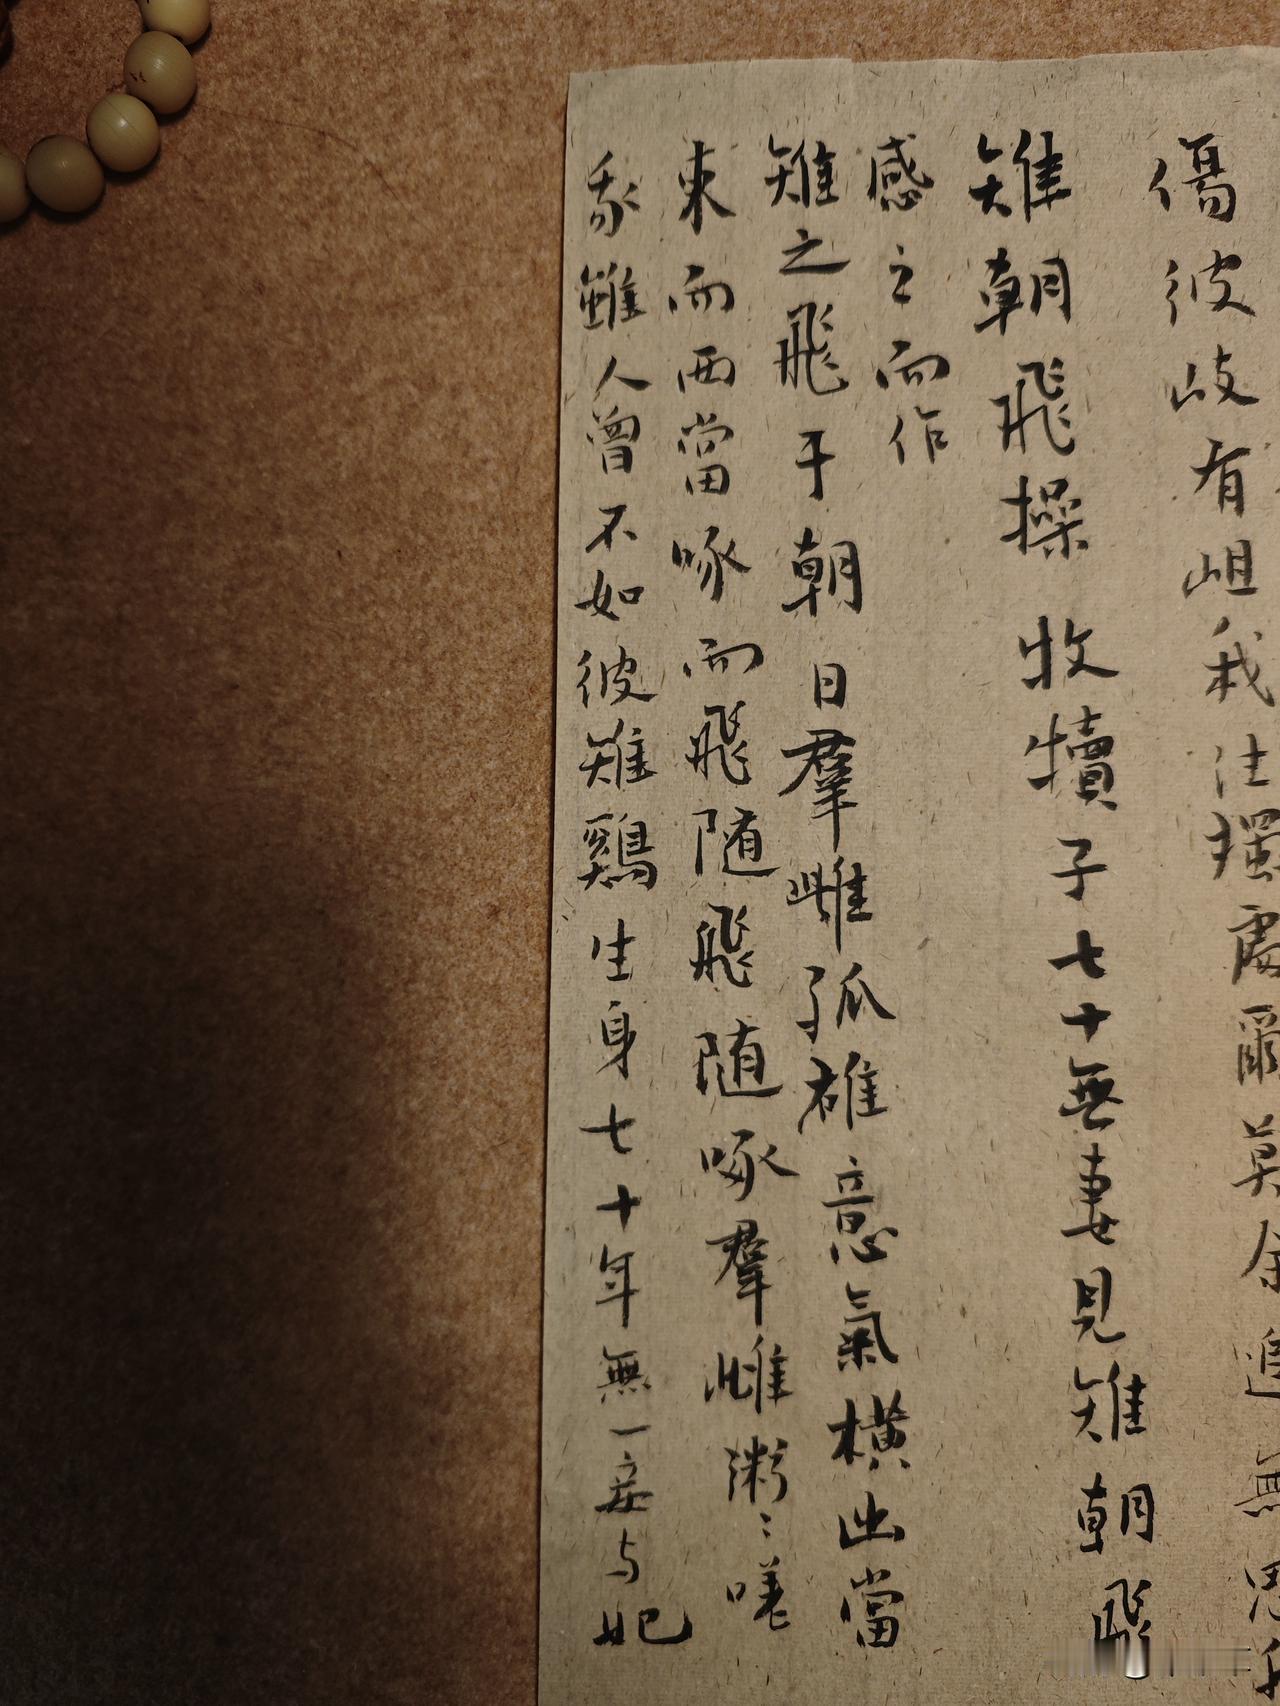 傷彼岐有岨我往獨處爾莫余追無思我
雉朝飛操 牧犢子七十無妻見雉朝飛
感之而作
雉之飛于朝日羣雌孤雄意氣橫出當
東而西當啄而飛随飛随啄羣雌粥〻嗟
我雖人曾不如彼雉鷄生身七十年無一妾与妃